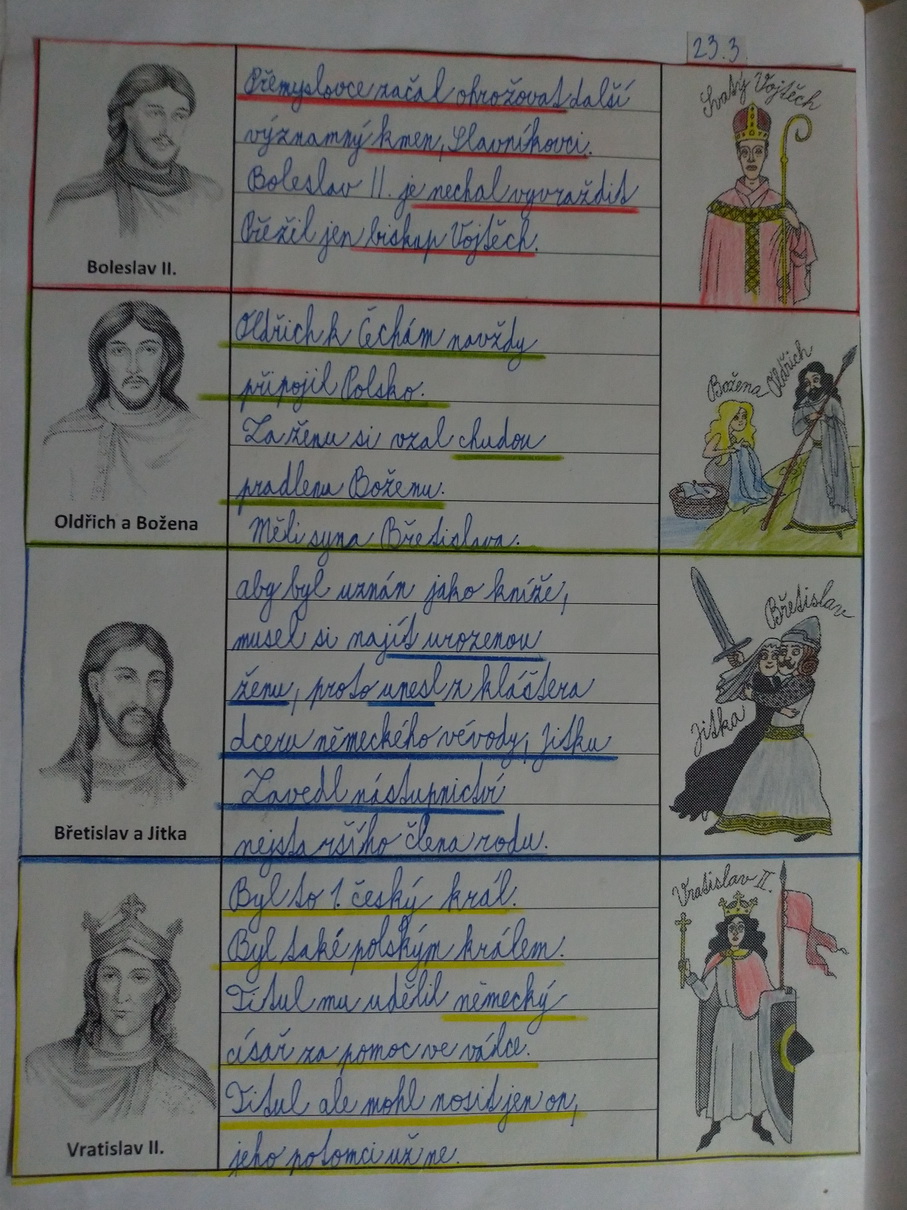 23.3
Přemyslovce začal ohrožovat další
významný kmen, Slavníkovci.
Boleslav II. je nechal vyvraždit
Přežil jen biskup Vojtěch.
Boleslav II.
Svatý Vojtěch
Oldřich k Čechám navždy
připojil Polsko.
Za ženu si vzal chudou
pradlenu Boženu.
Měli syna Břetislava.
Oldřich a Božena
Božena
Oldřich
aby byl uznán jako kníže,
musel si najít urozenou
ženu, proto unesl z kláštera
dceru německého vévody, Jitku
Zavedl nástupnictví
nejstaršího člena rodu.
Břetislav a Jitka
Břetislav
Jitka
Byl to 1. český král.
Byl také polským králem.
Titul mu udělil německý
císař za pomoc ve válce.
Titul ale mohl nosit jen on,
jeho potomci už ne.
Vratislav II.
Vratislav II.